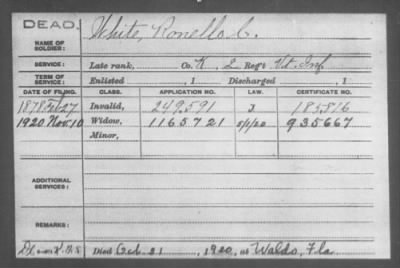 DEAD.
White, Ronello C.
NAME OF SOLDIER:
SERVICE: Late rank, Co. K, 2 Reg't Vt. Inf
TERM OF SERVICE: Enlisted , 1 Discharged , 1
DATE OF FILING. CLASS. APPLICATION NO. LAW. CERTIFICATE NO.
1878 Feb 27 Invalid, 249.591 185.816
1920 Nov. 10 Widow, 1165721 5/1/20 935667
Minor,
ADDITIONAL SERVICES:
REMARKS:
Died Oct. 21, 1920, at Waldo, Fla.